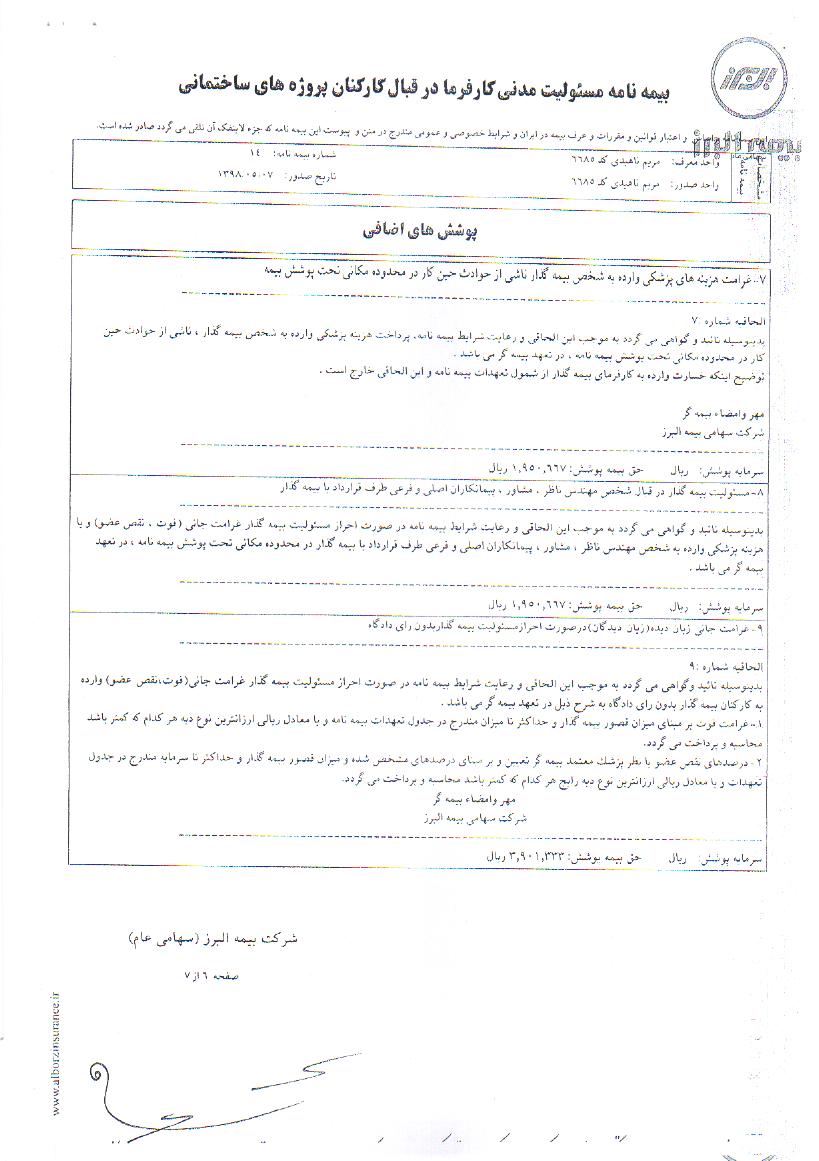 بیمه نامه مسئولیت مدنی کارفرما در قبال کارکنان پروژه های ساختمانی
و اعتبار قوانین و مقررات و عرف بیمه در ایران و شرایط خصوصی و عمومی مندرج در متن و پیوست این بیمه نامه که جزء لاینفک آن تلقی می گردد صادر شده است.
بیمه البرز
مشخصات بیمه نامه
واحد معرف: مریم ناهیدی کد ٦٦٨٥ شماره بیمه نامه: ١٤
واحد صدور: مریم ناهیدی کد ٦٦٨٥ تاریخ صدور: ١٣٩٨.٠٥.٠٧
پوشش های اضافی
٧-غرامت هزینه های پزشکی وارده به شخص بیمه گذار ناشی از حوادث حین کار در محدوده مکانی تحت پوشش بیمه
الحاقیه شماره :٧
بدینوسیله تائید و گواهی می گردد به موجب این الحاقی و رعایت شرایط بیمه نامه، پرداخت هزینه پزشکی وارده به شخص بیمه گذار ، ناشی از حوادث حین
کار در محدوده مکانی تحت پوشش بیمه نامه ، در تعهد بیمه گر می باشد .
توضیح اینکه خسارت وارده به کارفرمای بیمه گذار از شمول تعهدات بیمه نامه و این الحاقی خارج است .
مهر وامضاء بیمه گر
شرکت سهامی بیمه البرز
سرمایه پوشش: ریال حق بیمه پوشش: ١,٩٥٠,٦٦٧ ریال
٨-مسئولیت بیمه گذار در قبال شخص مهندس ناظر ، مشاور ، پیمانکاران اصلی و فرعی طرف قرارداد با بیمه گذار
بدینوسیله تائید و گواهی می گردد به موجب این الحاقی و رعایت شرایط بیمه نامه در صورت احراز مسئولیت بیمه گذار غرامت جانی (فوت ، نقص عضو) و یا
هزینه پزشکی وارده به شخص مهندس ناظر ، مشاور ، پیمانکاران اصلی و فرعی طرف قرارداد با بیمه گذار در محدوده مکانی تحت پوشش بیمه نامه ، در تعهد
بیمه گر می باشد .
سرمایه پوشش: ریال حق بیمه پوشش: ١,٩٥٠,٦٦٧ ریال
٩-غرامت جانی زیان دیده(زیان دیدگان)درصورت احرازمسئولیت بیمه گذاربدون رای دادگاه
الحاقیه شماره :٩
بدینوسیله تائید وگواهی می گردد به موجب این الحاقی و رعایت شرایط بیمه نامه در صورت احراز مسئولیت بیمه گذار غرامت جانی(فوت،نقص عضو) وارده
به کارکنان بیمه گذار بدون رای دادگاه به شرح ذیل در تعهد بیمه گر می باشد .
١-غرامت فوت بر مبنای میزان قصور بیمه گذار و حداکثر تا میزان مندرج در جدول تعهدات بیمه نامه و یا معادل ریالی ارزانترین نوع دیه هر کدام که کمتر باشد
محاسبه و پرداخت می گردد.
٢-درصدهای نقص عضو با نظر پزشك معتمد بیمه گر تعیین و بر مبنای درصدهای مشخص شده و میزان قصور بیمه گذار و حداکثر تا سرمایه مندرج در جدول
تعهدات و یا معادل ریالی ارزانترین نوع دیه رایج هر کدام که کمتر باشد محاسبه و پرداخت می گردد.
مهر وامضاء بیمه گر
شرکت سهامی بیمه البرز
سرمایه پوشش: ریال حق بیمه پوشش: ٣,٩٠١,٣٣٣ ریال
شرکت بیمه البرز (سهامی عام)
صفحه ٦ از ٧
www.alborzinsurance.ir